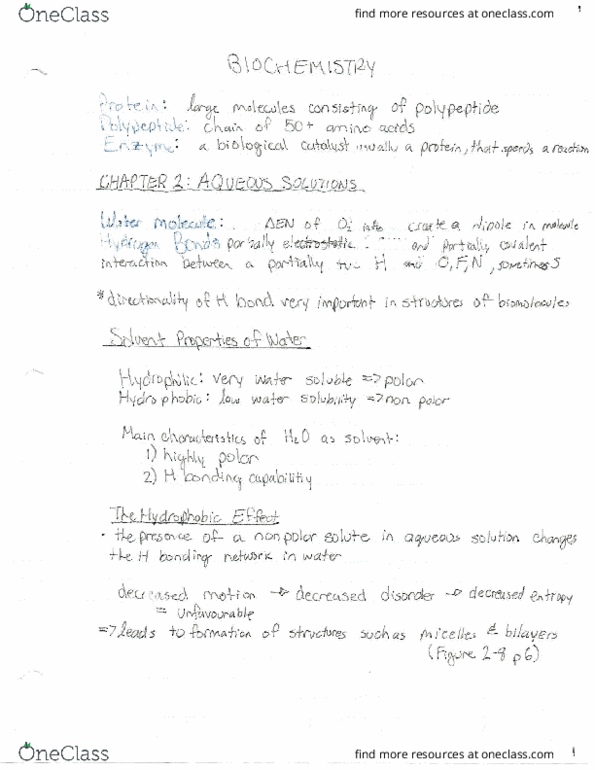 OneClass
find more resources at oneclass.com
1
BIOCHEMISTRY
Protein: large molecules consisting of polypeptide
Polypeptide: chain of 50+ amino acids
Enzyme: a biological catalyst usually a protein, that speeds a reaction
CHAPTER 2: AQUEOUS SOLUTIONS
Water molecule: ΔEN of create a dipole in molecule
Hydrogen Bonds partially electrostatic and partially covalent
interaction between a partially +ve H and O,F,N, sometimes S
*directionality of H bond very important in structures of biomolecules
Solvent Properties of Water
Hydrophilic: very water soluble => polar
Hydrophobic: low water solubility => non polar
Main characteristics of H2O as solvent:
1) highly polar
2) H bonding capability
The Hydrophobic Effect
• the presence of a nonpolar solute in aqueous solution changes
the H bonding network in water
decreased motion → decreased disorder → decreased entropy
= unfavourable
=> leads to formation of structures such as micelles & bilayers
(Figure 2-8 p6)
OneClass
find more resources at oneclass.com
1